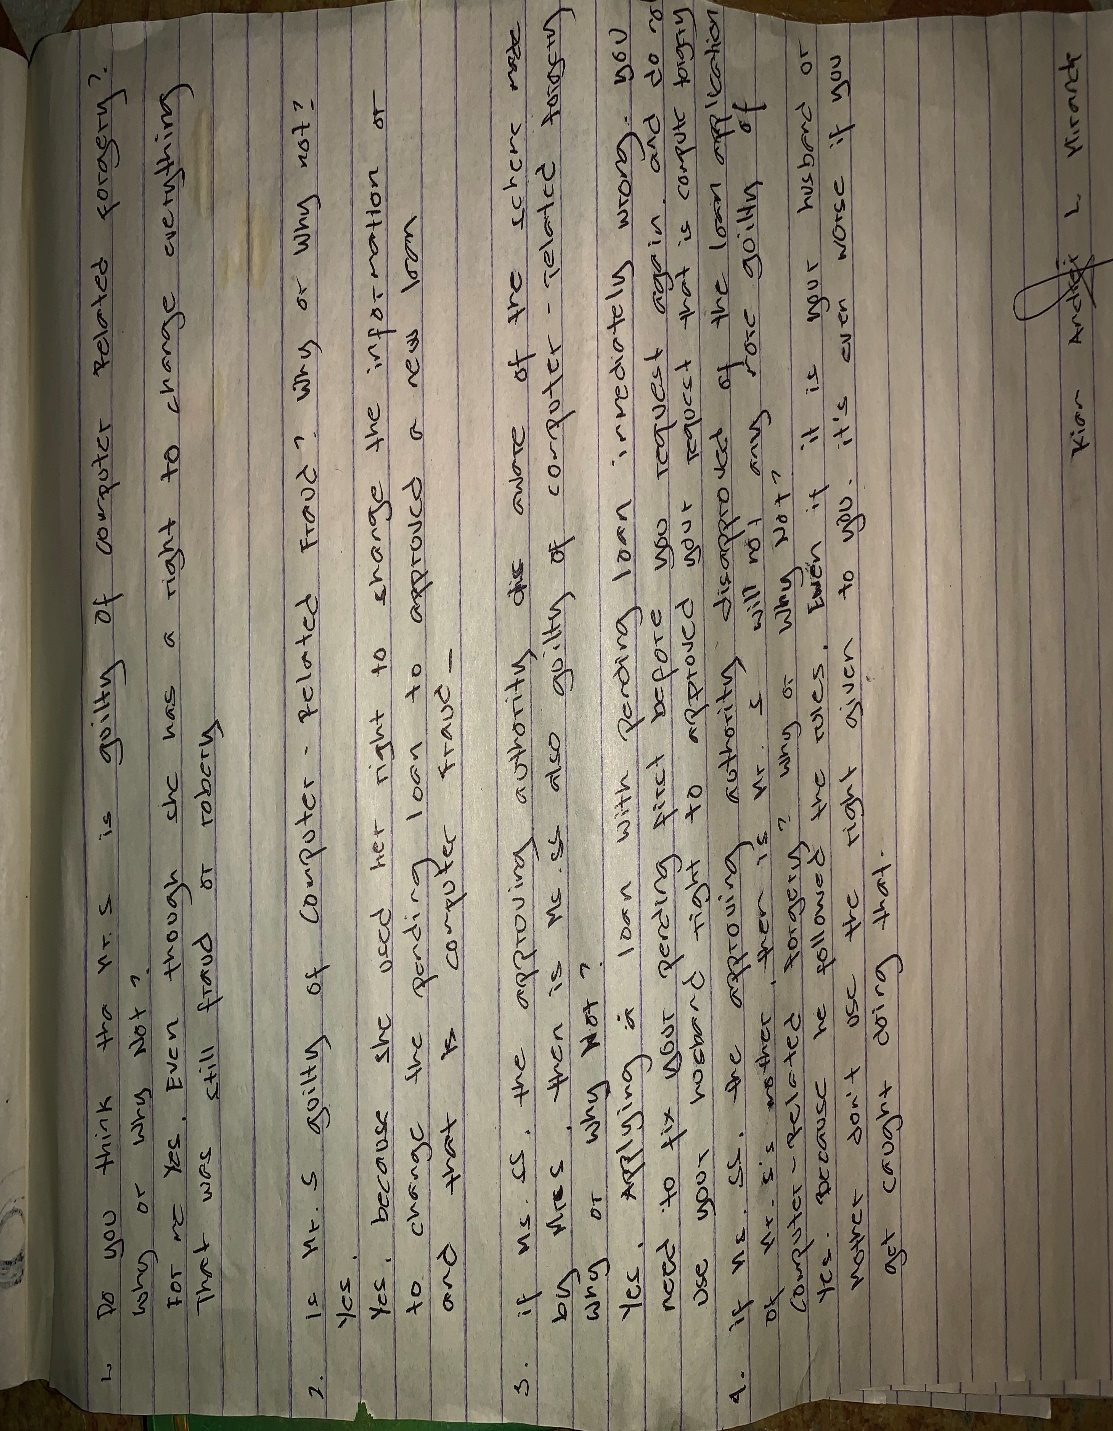 1. Do you think tha Mr. S is guilty of computer Related Forgery?
Why or Why Not?
For me Yes. Even though she has a right to change everything
That was still fraud or robery
2. Is Mr. S guilty of Computer-Related Fraud? Why or Why not?
Yes.
Yes, because she used her right to change the information or
to change the pending loan to approved a new loan
and that is computer fraud_
3. if Ms. SS, the approving authority is aware of the scheme made
by Mres, then is Ms. SS also goilty of computer-related forgery
Why or Why Not?
Yes, Applying a loan with pending loan immediately wrong. you
need to fix your pending first before you request again. and do not
use your husband right to approved your request that is compute forgery
4. if Ms. SS, the approving authority disapproved of the loan application
of Mr. S's mother, then is Mr. S will not any more goilty of
Computer-Related Forgery? Why or Why Not?
Yes. Because he followed the rules. Even if it is your husband or
Mother don't use the right given to you. it's even worse if you
got caught doing that.
Kian Andrei L Miranda